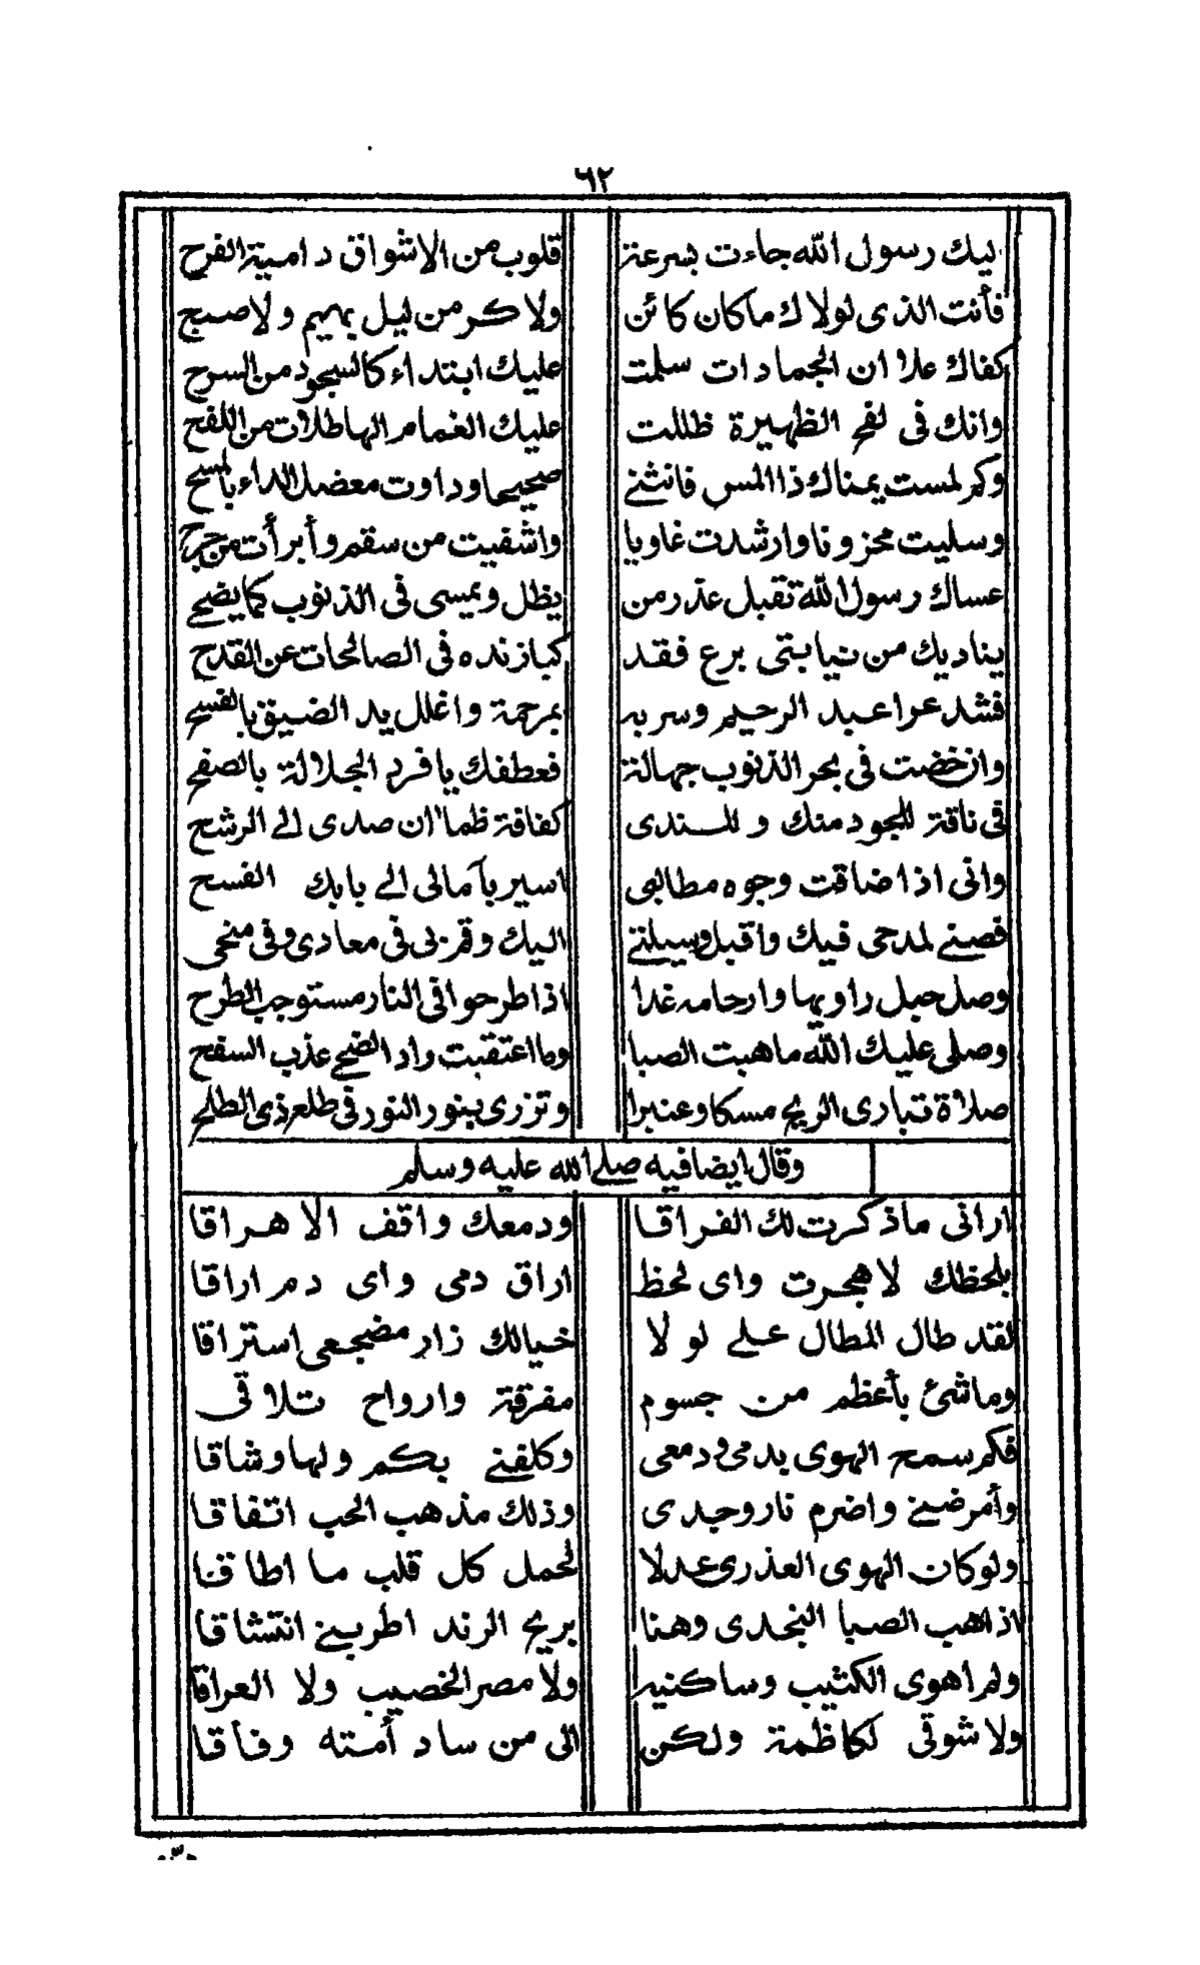 ٦٢
ليك رسول الله جاءت بسرعة قلوب من الاشواق دامية القرح
فأنت الذى لولاك ماكان كائن ولا كر من ليل بهيم ولا صبح
كفاك علا ان الجمادات سلمت عليك ابتداء كالسجود من السرح
وانك فى لفح الظهيرة ظللت عليك الغمام الهاطلات من اللفح
وكم لمست يمناك ذا المس فانثنے صحيحا وداوت معضل الداء بالمسح
وسليت محزونا وارشدت غاويا واشفيت من سقم وأبرأت من جرح
عساك رسول الله تقبل عذر من يظل ويمسى فى الذنوب كما يضحے
يناديك من نيابتى برع فقد كبا زنده فى الصالحات عن القدح
فشد عرا عبد الرحيم وسر به بمرحمة واغلل يد الضيق بالفسح
وان خضت فى بحر الذنوب جهالة فعطفك يا فرد الجلالة بالصفح
فى ناقة للجود منك وللندى كفاقة ظماان صدى الے الرشح
وانى اذا ضاقت وجوه مطالبى اسير بآمالى الے بابك الفسح
فصنے لمدحى فيك واقبل وسيلتے اليك وقم بى فى معادى وفى منحى
وصل حبل راويها وارحامه غدا اذا طرحوا فى النار مستوجب الطرح
وصلى عليك الله ماهبت الصبا وما اعتقبت راد الضحے عذب السفح
صلاة تبارى الريح مسكا وعنبرا وتزرى بنور النور فى طلعة ذى الطلح
وقال ايضا فيه صلے الله عليه وسلم
ارانى ماذكرت لك الفراقا ودمعك واقف الا هراقا
بلحظك لا هجرت واى لحظ اراق دمى واى دم اراقا
لقد طال المطال علے لولا خيالك زار مضجعى استراقا
وماشئ بأعظم من جسوم مفرقة وارواح تلاقى
فكم سمح الهوى بدمى ودمعى وكلفنے بكم ولها وشاقا
وأمرضنے واضرم نار وجدى وذلك مذهب الحب اتفاقا
ولوكان الهوى العذرى عدلا لحمل كل قلب ما اطاقنا
اذا هب الصبا النجدى وهنا بريح الرند اطربنے انتشاقا
ولم اهوى الكثيب وساكنيه ولا مصر الخصيب ولا العراقا
ولا شوقى لكاظمة ولكن الى من ساد أمته وفاقا